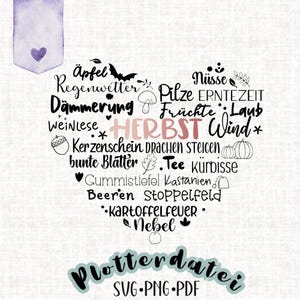 Äpfel Nüsse
Regenwetter Pilze ERNTEZEIT
Dämmerung Früchte Laub
Weinlese HERBST Wind
Kerzenschein DRACHEN STEIGEN
bunte Blätter Tee KÜRBISSE
Gummistiefel Kastanien
Beeren STOPPELFELD
KARTOFFELFEUER
Nebel
Plotterdatei
SVG•PNG•PDF